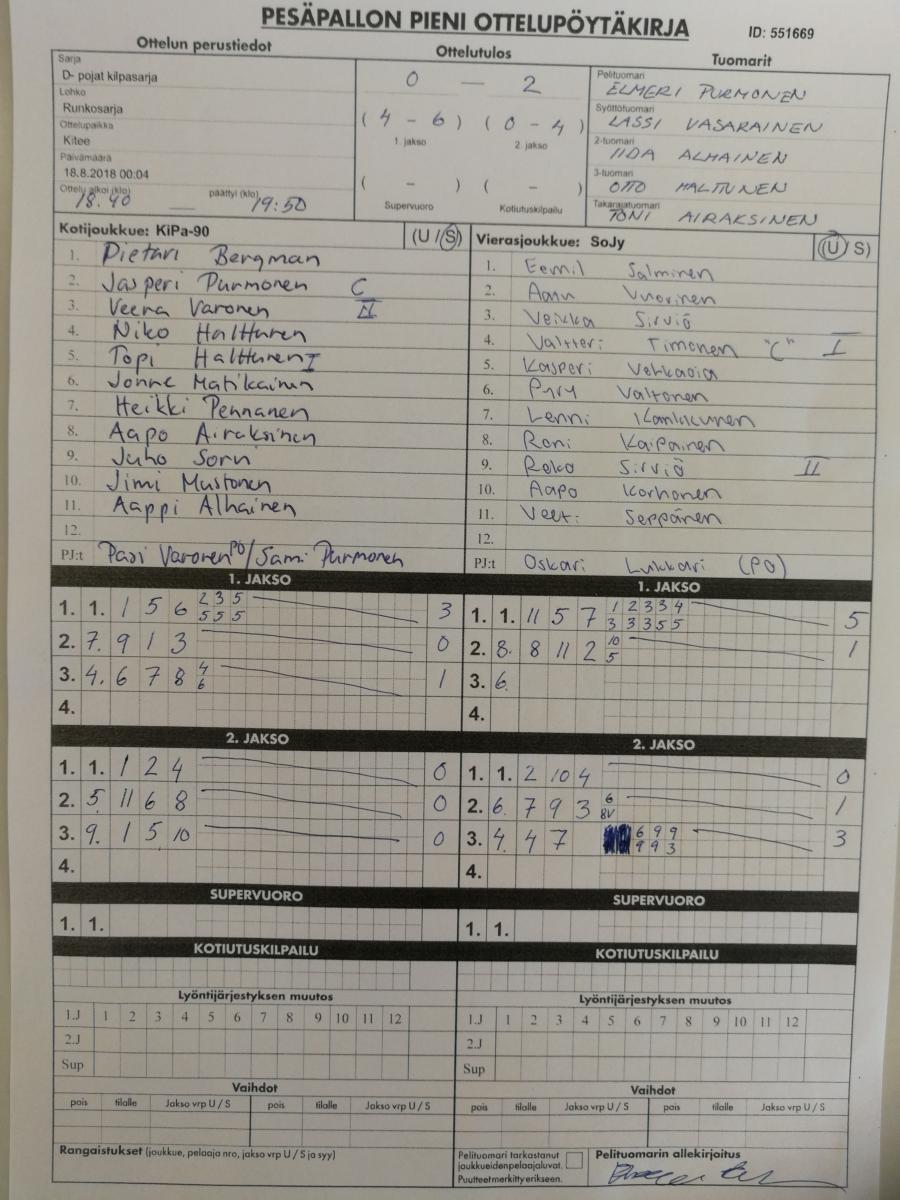 PESÄPALLON PIENI OTTELUPÖYTÄKIRJA
ID: 551669
Ottelun perustiedot
Sarja
D- pojat kilpasarja
Lohko
Runkosarja
Ottelupaikka
Kitee
Päivämäärä
18.8.2018 00:04
Ottelu alkoi (klo) päättyi (klo)
18.40 19:50
Ottelutulos
0 — 2
(4 - 6) (0 - 4)
1. jakso 2. jakso
( - ) ( - )
Supervuoro Kotiutuskilpailu
Tuomarit
Pelituomari
ELMERI PURMONEN
Syöttötuomari
LASSI VASARAINEN
2-tuomari
IIDA ALHAINEN
3-tuomari
OTTO HALTUNEN
Takarajatuomari
TONI AIRAKSINEN
Kotijoukkue: KiPa-90 (U / S)
1. Pietari Bergman
2. Jasperi Purmonen C
3. Veera Varonen II
4. Niko Halttunen
5. Topi Halttunen I
6. Jonne Matikainen
7. Heikki Pennanen
8. Aapo Airaksinen
9. Juho Sorvi
10. Jimi Mustonen
11. Aappi Alhainen
12.
PJ:t Pasi Varonen PO / Sami Purmonen
Vierasjoukkue: SoJy (U / S)
1. Eemil Salminen
2. Aaru Vuorinen
3. Veikka Sirviö
4. Valtteri Timonen "C" I
5. Kasperi Vehkaoja
6. Pyry Valtonen
7. Lenni
8. Roni Kaipainen
9. Reko Sirviö II
10. Aapo Korhonen
11. Veeti Seppänen
12.
PJ:t Oskari Lukkari (PO)
1. JAKSO
1. 1. 1 5 6 2 3 5 3
5 5 5
2. 7. 9 1 3 0
3. 4. 6 7 8 4 1
6
4.
1. JAKSO
1. 1. 11 5 7 1 2 3 3 4 5
3 3 3 5 5
2. 8. 8 11 2 10 1
5
3. 6.
4.
2. JAKSO
1. 1. 1 2 4 0
2. 5. 11 6 8 0
3. 9. 1 5 10 0
4.
2. JAKSO
1. 1. 2 10 4 0
2. 6. 7 9 3 6 1
8V
3. 4. 4 7 6 9 9 3
9 9 3
4.
SUPERVUORO
1. 1.
SUPERVUORO
1. 1.
KOTIUTUSKILPAILU
KOTIUTUSKILPAILU
Lyöntijärjestyksen muutos
1.J 1 2 3 4 5 6 7 8 9 10 11 12
2.J
Sup
Lyöntijärjestyksen muutos
1.J 1 2 3 4 5 6 7 8 9 10 11 12
2.J
Sup
Vaihdot
pois tilalle Jakso vrp U / S pois tilalle Jakso vrp U / S
Vaihdot
pois tilalle Jakso vrp U / S pois tilalle Jakso vrp U / S
Rangaistukset (joukkue, pelaaja nro, jakso vrp U / S ja syy)
Pelituomari tarkastanut
joukkueidenpelaajaluvat.
Puutteet merkitty erikseen.
Pelituomarin allekirjoitus